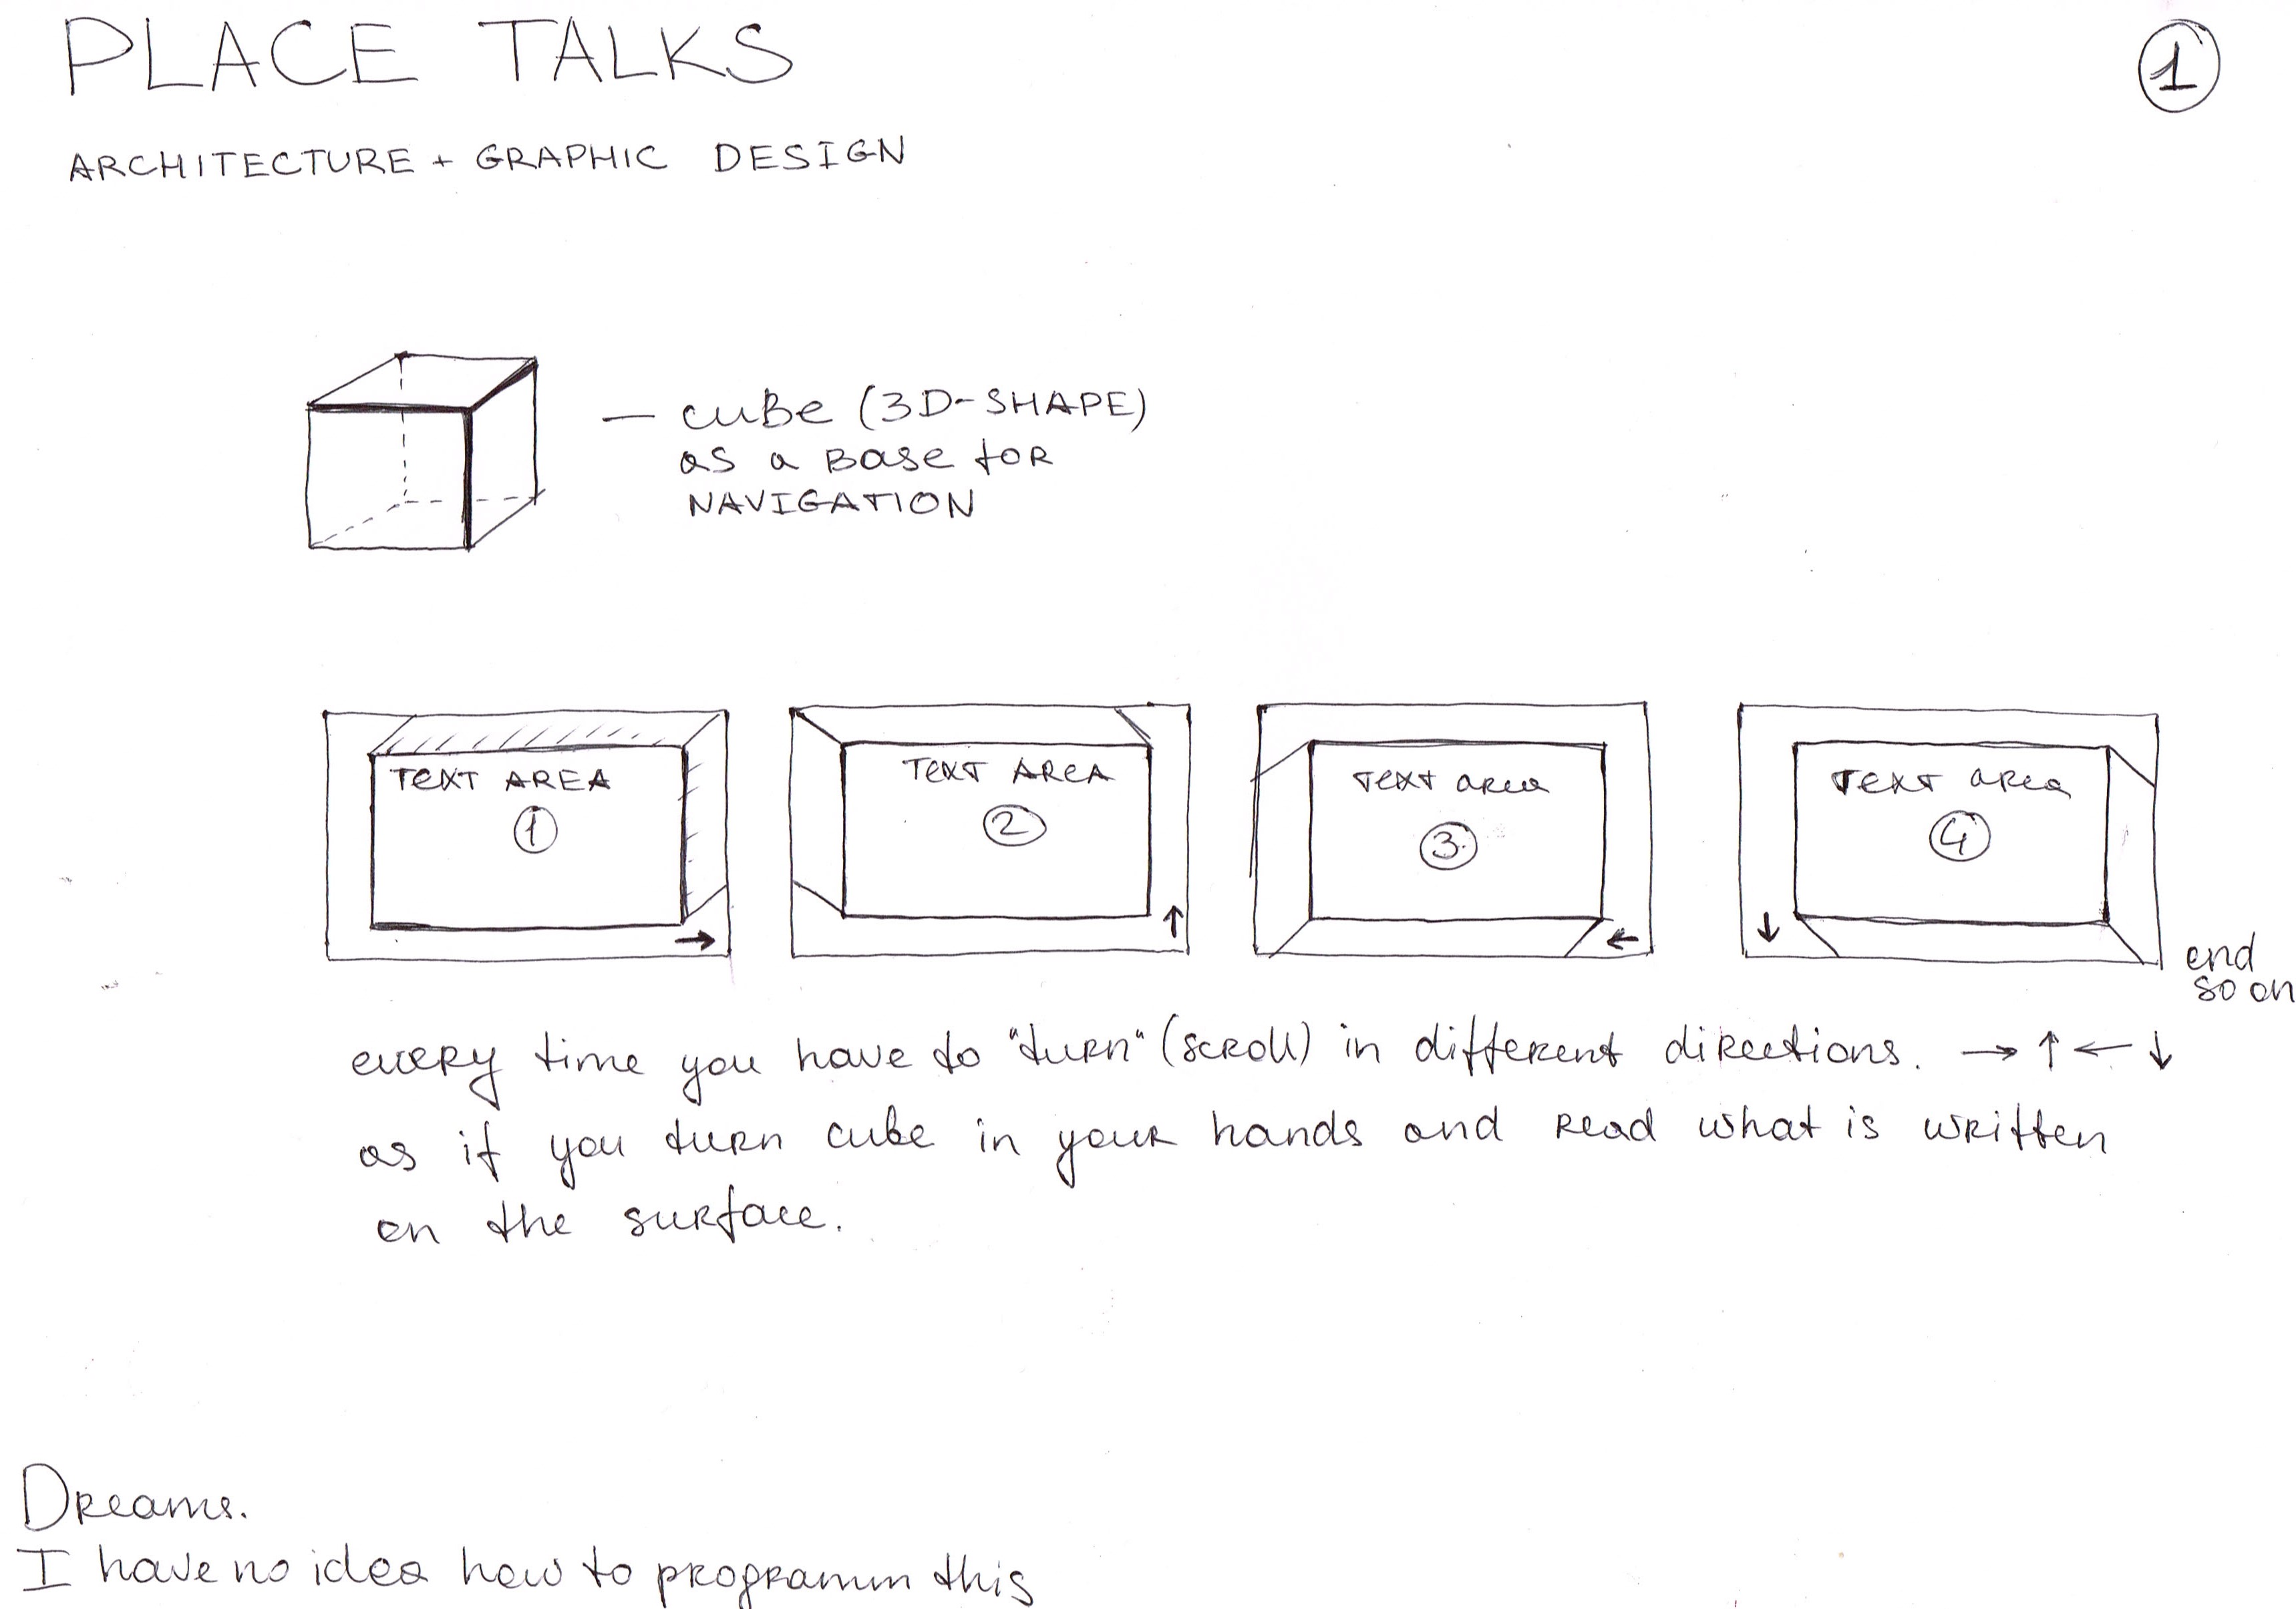 PLACE TALKS
1
ARCHITECTURE + GRAPHIC DESIGN
— CUBE (3D-SHAPE)
as a Base for
NAVIGATION
TEXT AREA
1
→
TEXT AREA
2
↑
Text area
3.
←
Text area
4
↓
end
so on
every time you have to "turn" (scroll) in different directions. → ↑ ← ↓
as if you turn cube in your hands and read what is written
on the surface.
Dreams.
I have no idea how to programm this